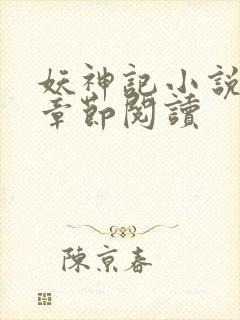 妖神記小說
章節閱讀
陳京春